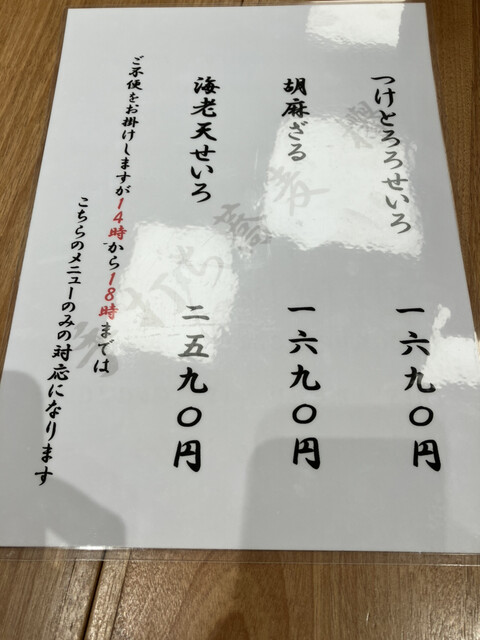 つけとろろせいろ 一六九〇円
胡麻ざる 一六九〇円
海老天せいろ 二五九〇円
ご不便をお掛けしますが14時から18時までは
こちらのメニューのみの対応になります